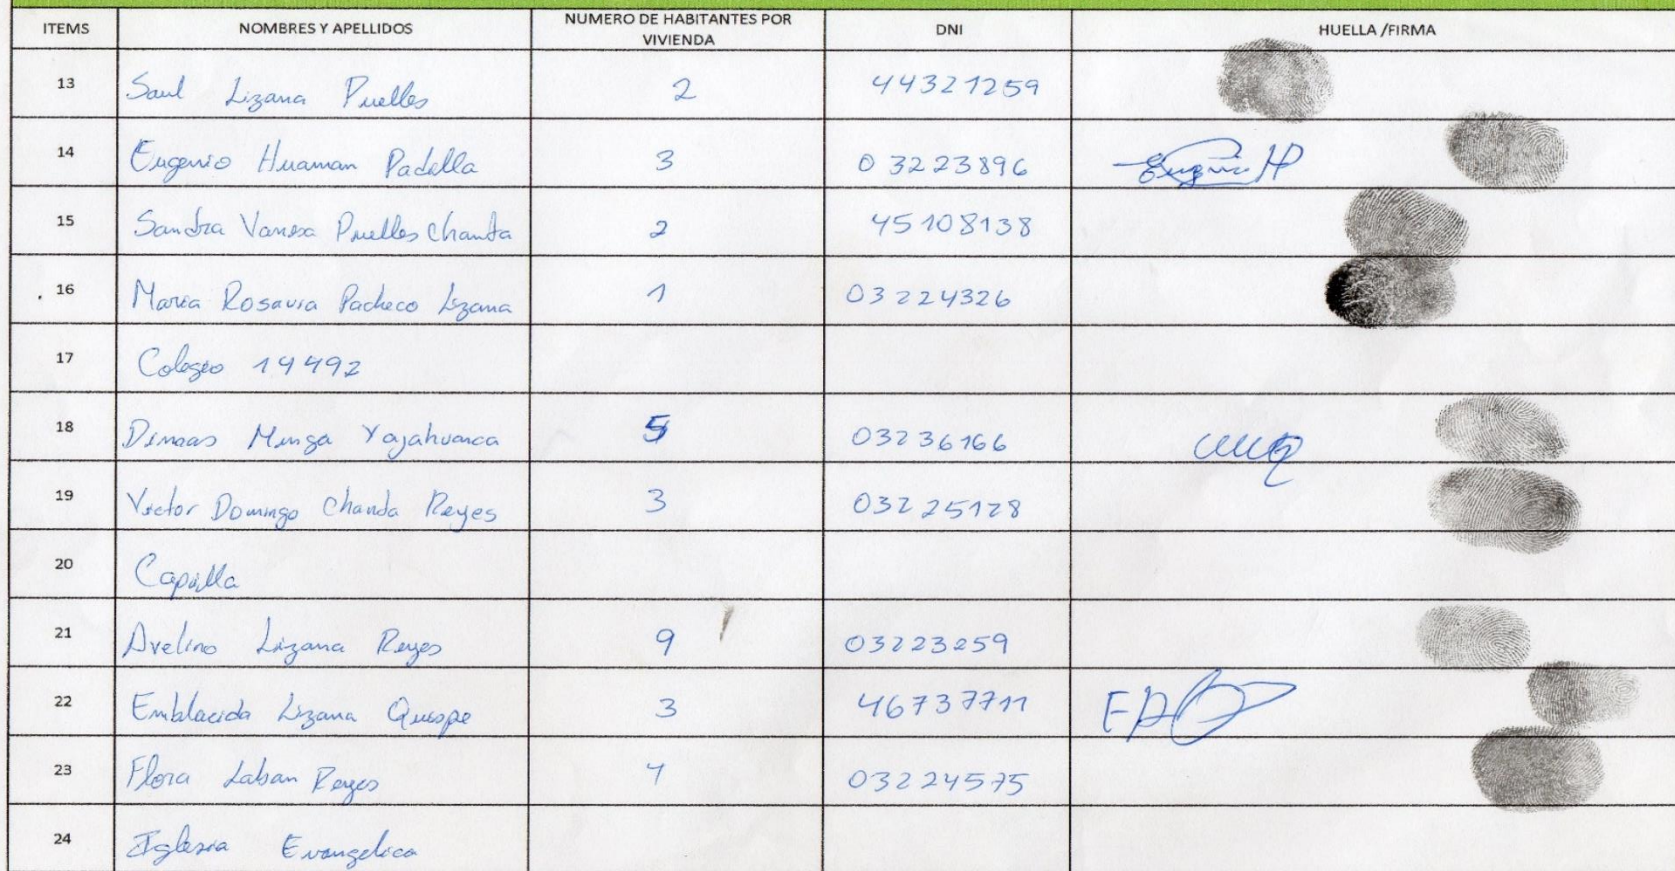 ITEMS NOMBRES Y APELLIDOS NUMERO DE HABITANTES POR VIVIENDA DNI HUELLA /FIRMA
13 Saul Lizana Puelles 2 44321259
14 Eugenio Huaman Padilla 3 03223896 Eugenio HP
15 Sandra Vanesa Puelles Chanta 2 45108138
16 Maria Rosaura Pacheco Lizana 1 03224326
17 Colegio 14492
18 Dimas Minga Yajahuanca 5 03236166
19 Victor Domingo Chanda Reyes 3 03225128
20 Capilla
21 Avelino Lizana Reyes 9 03223259
22 Emblacida Lizana Quispe 3 46737711
23 Flora Laban Reyes 4 03224575
24 Iglesia Evangelica